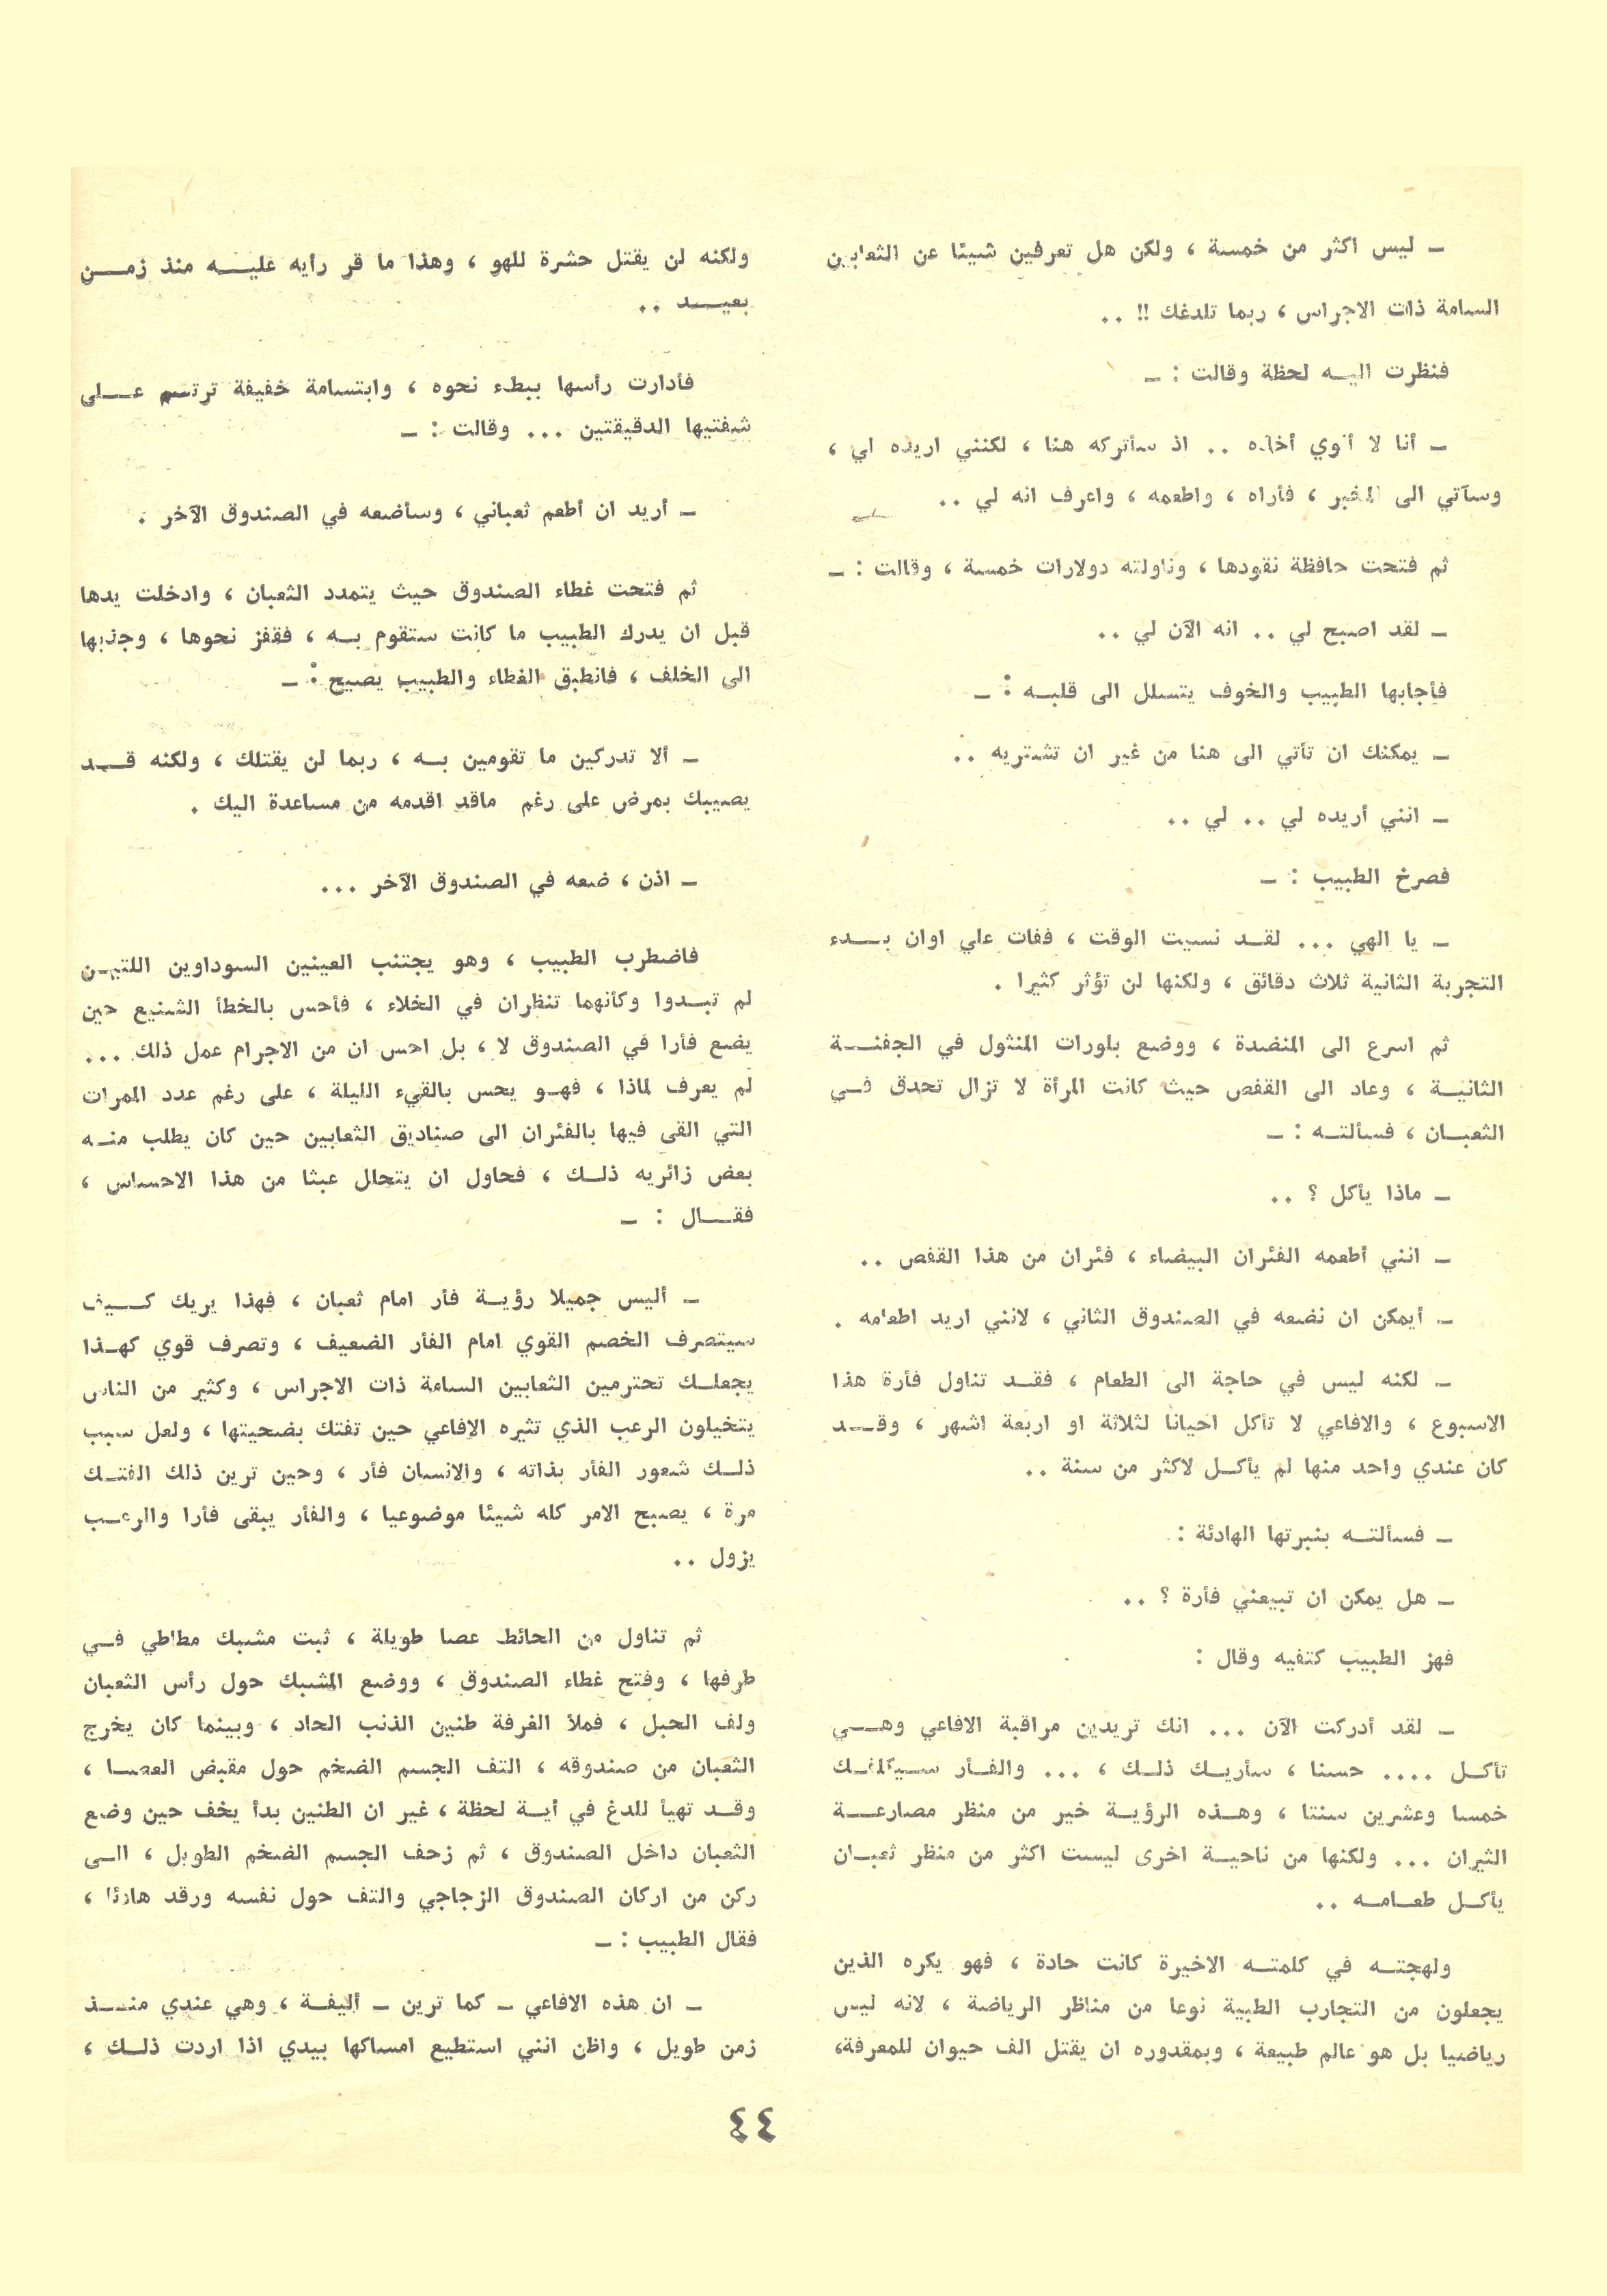 ـ ليس اكثر من خمسة ، ولكن هل تعرفين شيئا عن الثعابين
السامة ذات الاجراس ، ربما تلدغك !! ..
فنظرت اليه لحظة وقالت : ـ
ـ أنا لا أنوي أخذه .. اذ سأتركه هنا ، لكنني اريده لي ،
وسآتي الى المخبر ، فأراه ، واطعمه ، واعرف انه لي ..
ثم فتحت حافظة نقودها ، وناولته دولارات خمسة ، وقالت : ـ
ـ لقد اصبح لي .. انه الآن لي ..
فأجابها الطبيب والخوف يتسلل الى قلبه : ـ
ـ يمكنك ان تأتي الى هنا من غير ان تشتريه ..
ـ انني أريده لي .. لي ..
فصرخ الطبيب : ـ
ـ يا الهي ... لقد نسيت الوقت ، ففات علي اوان بدء
التجربة الثانية ثلاث دقائق ، ولكنها لن تؤثر كثيرا .
ثم اسرع الى المنضدة ، ووضع بلورات المنثول في الجفنة
الثانية ، وعاد الى القفص حيث كانت المرأة لا تزال تحدق في
الثعبان ، فسألته : ـ
ـ ماذا يأكل ؟ ..
ـ انني أطعمه الفئران البيضاء ، فئران من هذا القفص ..
ـ أيمكن ان نضعه في الصندوق الثاني ، لانني اريد اطعامه .
ـ لكنه ليس في حاجة الى الطعام ، فقد تناول فأرة هذا
الاسبوع ، والافاعي لا تأكل احيانا لثلاثة او اربعة اشهر ، وقد
كان عندي واحد منها لم يأكل لاكثر من سنة ..
ـ فسألته بنبرتها الهادئة :
ـ هل يمكن ان تبيعني فأرة ؟ ..
فهز الطبيب كتفيه وقال :
ـ لقد أدركت الآن ... انك تريدين مراقبة الافاعي وهي
تأكل .... حسنا ، سأريك ذلك ، ... والفأر سيكلفك
خمسا وعشرين سنتا ، وهذه الرؤية خير من منظر مصارعة
الثيران ... ولكنها من ناحية اخرى ليست اكثر من منظر ثعبان
يأكل طعامه ..
ولهجته في كلمته الاخيرة كانت حادة ، فهو يكره الذين
يجعلون من التجارب الطبية نوعا من مناظر الرياضة ، لانه ليس
رياضيا بل هو عالم طبيعة ، وبمقدوره ان يقتل الف حيوان للمعرفة،
ولكنه لن يقتل حشرة للهو ، وهذا ما قر رأيه عليه منذ زمن
بعيد ..
فأدارت رأسها ببطء نحوه ، وابتسامة خفيفة ترتسم على
شفتيها الدقيقتين ... وقالت : ـ
ـ أريد ان أطعم ثعباني ، وسأضعه في الصندوق الآخر .
ثم فتحت غطاء الصندوق حيث يتمدد الثعبان ، وادخلت يدها
قبل ان يدرك الطبيب ما كانت ستقوم به ، فقفز نحوها ، وجذبها
الى الخلف ، فانطبق الغطاء والطبيب يصيح : ـ
ـ ألا تدركين ما تقومين به ، ربما لن يقتلك ، ولكنه قد
يصيبك بمرض على رغم ماقد اقدمه من مساعدة اليك .
ـ اذن ، ضعه في الصندوق الآخر ...
فاضطرب الطبيب ، وهو يجتنب العينين السوداوين اللتين
لم تبدوا وكأنهما تنظران في الخلاء ، فأحس بالخطأ الشنيع حين
يضع فأرا في الصندوق لا ، بل احس ان من الاجرام عمل ذلك ...
لم يعرف لماذا ، فهو يحس بالقيء الليلة ، على رغم عدد المرات
التي القى فيها بالفئران الى صناديق الثعابين حين كان يطلب منه
بعض زائريه ذلك ، فحاول ان يتحلل عبثا من هذا الاحساس ،
فقال : ـ
ـ أليس جميلا رؤية فأر امام ثعبان ، فهذا يريك كيف
سيتصرف الخصم القوي امام الفأر الضعيف ، وتصرف قوي كهذا
يجعلك تحترمين الثعابين السامة ذات الاجراس ، وكثير من الناس
يتخيلون الرعب الذي تثيره الافاعي حين تفتك بضحيتها ، ولعل سبب
ذلك شعور الفأر بذاته ، والانسان فأر ، وحين ترين ذلك الفتك
مرة ، يصبح الامر كله شيئا موضوعيا ، والفأر يبقى فأرا والرعب
يزول ..
ثم تناول من الحائط عصا طويلة ، ثبت مشبك مطاطي في
طرفها ، وفتح غطاء الصندوق ، ووضع المشبك حول رأس الثعبان
ولف الحبل ، فملأ الغرفة طنين الذنب الحاد ، وبينما كان يخرج
الثعبان من صندوقه ، التف الجسم الضخم حول مقبض العصا ،
وقد تهيأ للدغ في أية لحظة ، غير ان الطنين بدأ يخف حين وضع
الثعبان داخل الصندوق ، ثم زحف الجسم الضخم الطويل ، الى
ركن من اركان الصندوق الزجاجي والتف حول نفسه ورقد هادئا ،
فقال الطبيب : ـ
ـ ان هذه الافاعي ـ كما ترين ـ أليفة ، وهي عندي منذ
زمن طويل ، واظن انني استطيع امساكها بيدي اذا اردت ذلك ،
٤٤